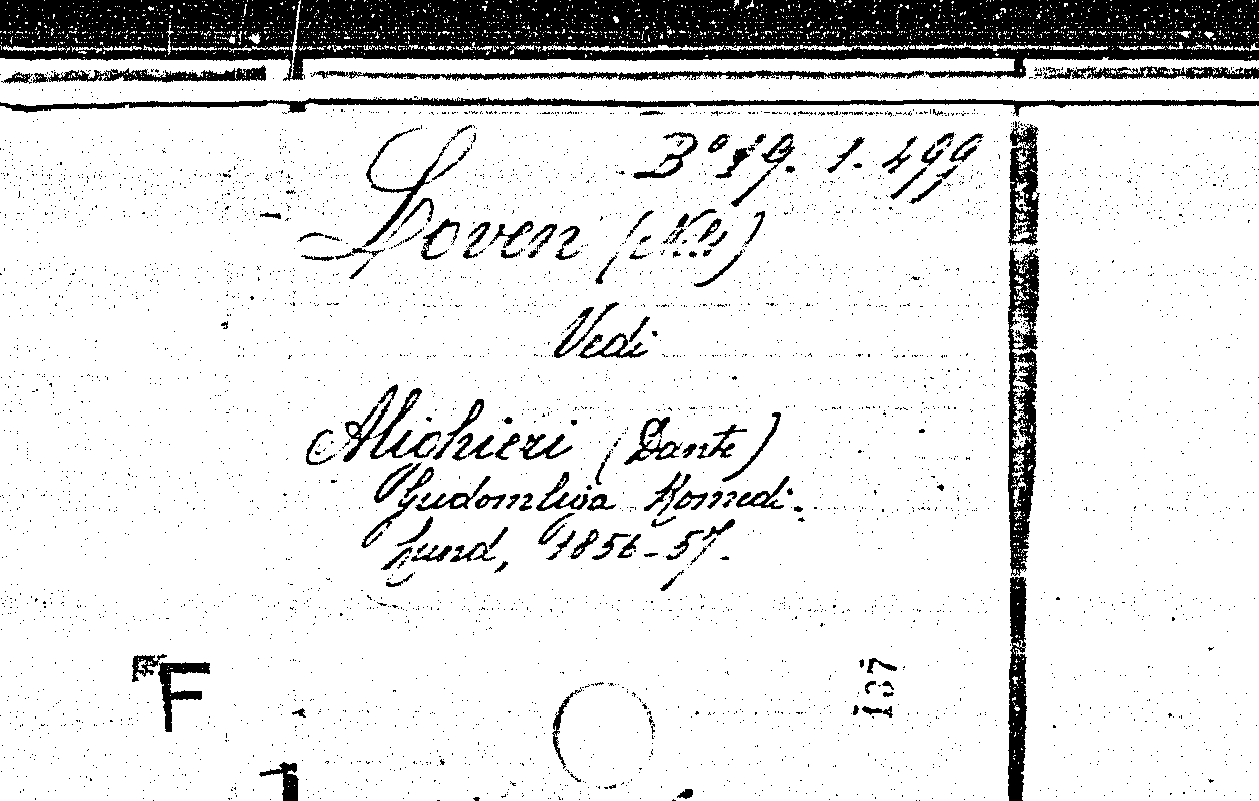 B° 19. 1. 499
Loven (Nils)
Vedi
Alighieri (Dante)
Gudomliga Komedi.
Lund, 1856-57.
137
F